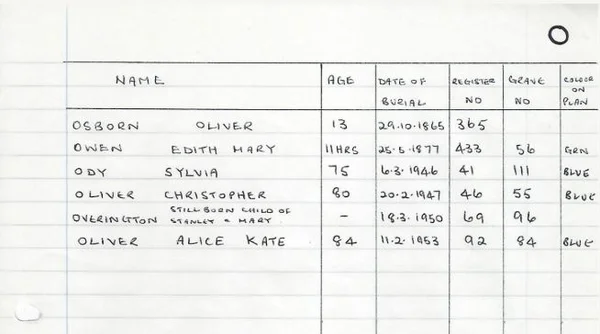 O
NAME AGE DATE OF BURIAL REGISTER NO GRAVE NO COLOUR ON PLAN
OSBORN OLIVER 13 29.10.1865 365
OWEN EDITH MARY 11HRS 25.5.1877 433 56 GRN
ODY SYLVIA 75 6.3.1946 41 111 BLUE
OLIVER CHRISTOPHER 80 20.2.1947 46 55 BLUE
OVERINGTON STILLBORN CHILD OF STANLEY & MARY - 18.3.1950 69 96
OLIVER ALICE KATE 84 11.2.1953 92 84 BLUE